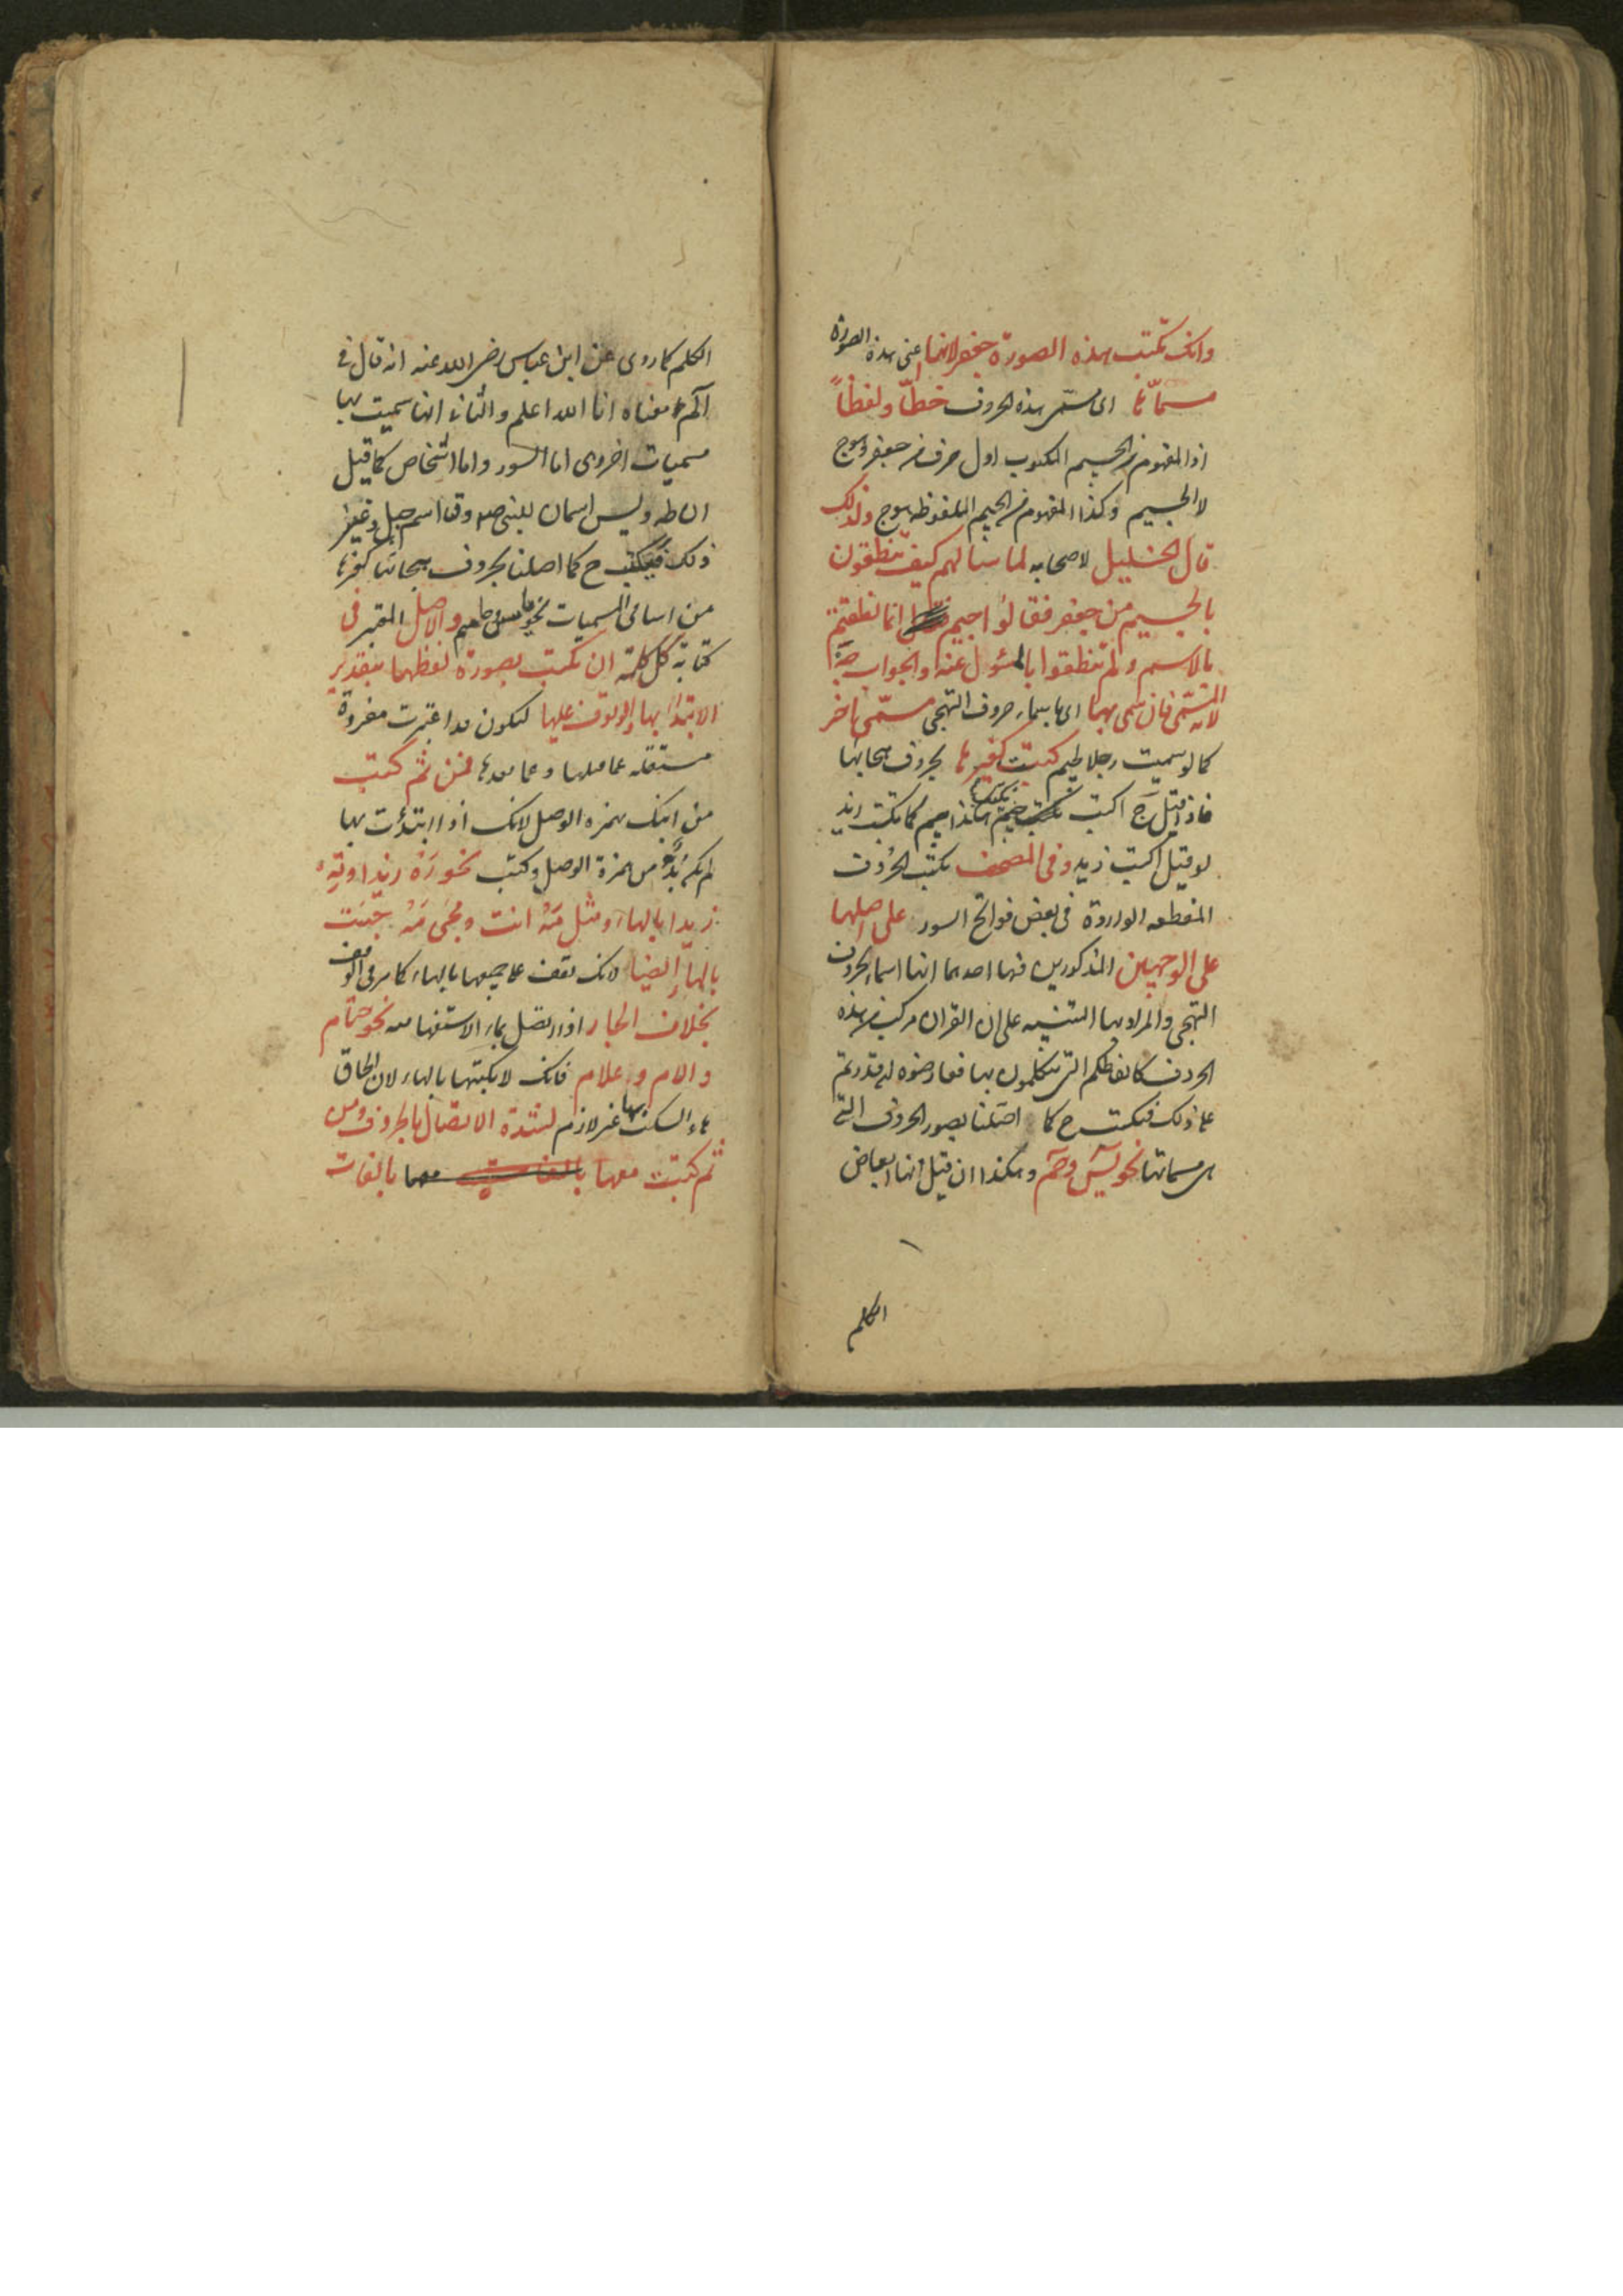 وانك تكتب هذه الصورة جعفر لانها اعنى هذه الصورة
مسماها اى مسمى هذه الحروف خطا ولفظا
اذ المفهوم من الجيم المكتوب اول حرف من جعفر وهو ج
لا الجيم وكذا المفهوم من الجيم الملفوظه هو ج ولذلك
قال الخليل لاصحابه لما سالهم كيف تنطقون
بالجيم من جعفر فقالوا جيم انما نطقتم
بالاسم ولم تنطقوا بالمسئول عنه والجواب جه
لانه المسمى فان سمى بها اى باسماء حروف التهجى مسمى اخر
كما لو سميت رجلا بجيم كتبت كغيرها بحروف هجائها
فاذا قيل ج اكتب جيم هكذا جيم كما تكتب زيد
لو قيل اكتب زيد وفى المصحف تكتب الحروف
المقطعه الواردة فى بعض فواتح السور على اصلها
على الوجهين المذكورين فيها احدهما انها اسماء الحروف
التهجى والمراد بها التنبيه على ان القران مركب من هذه
الحروف كالفاظكم التى تتكلمون بها فعارضوه ان قدرتم
على ذلك فيكتب ح كما اصلنا بصور الحروف التى
هى مسماتها نحو يس وحم وهكذا ان قيل انها ابعاض
الكلم
الكلم كما روى عن ابن عباس رضى الله عنه انه قال فى
الم معناه انا الله اعلم والثانى انها سميت بها
مسميات اخروى اما السور واما اشخاص كما قيل
ان طه ويس اسمان للنبى صلم وق اسم جبل وغير
ذلك فيكتب ح كما اصلنا بحروف هجائها كغيرها
من اسامى المسميات نحو ياسين حاميم والاصل المعتبر فى
كتابة كل كلمة ان تكتب بصورة لفظها بتقدير
الابتداء بها والوقوف عليها لتكون قد اعتبرت مفردة
مستقله عما قبلها وعما بعدها فمن ثم كتب
من ابنك بهمزه الوصل لانك اذا ابتدئت بها
لم يكن بد من همزة الوصل وكتب نحو ره زيدا وقه
زيدا بالهاء ومثل مه انت ومجىء مه جئت
بالهاء ايضا لانك تقف على جميعها بالهاء كما مر فى الوقف
بخلاف الجار اذا اتصل بماء الاستفهاميه نحو حتام
والام وعلام فانك لا تكتبها بالهاء لان الحاق
هاء السكت بها غير لازم لشدة الاتصال بالحروف ومن
ثم كتبت معها بالفات